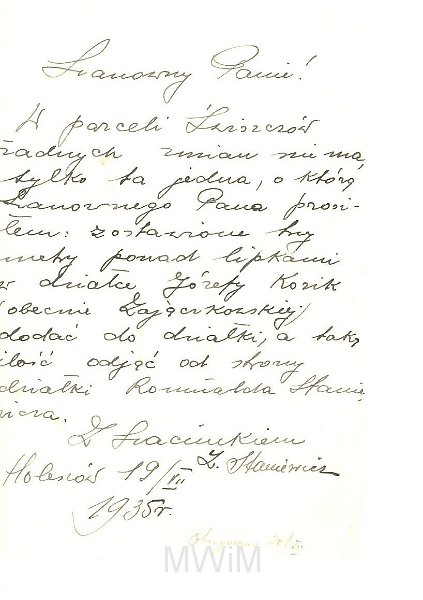 Szanowny Panie!
W parceli Świszczów
żadnych zmian nie ma,
tylko ta jedna, o którą
Szanownego Pana prosi-
łem: zostawione trzy
metry ponad lipkami
w działce Józefy Kozik
(obecnie Zajączkowskiej)
dodać do działki, a taką
ilość odjąć od strony
działki Romualda Stanie-
wicza.
Z szacunkiem
Z. Staniewicz
Holesiów 19/VII
1935r.
20/VII
MWiM